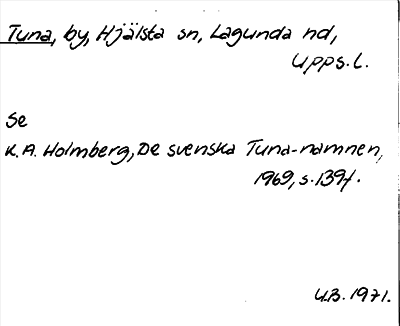 Tuna, by, Hjälsta sn, Lagunda hd,
Upps. l.
Se
K.A. Holmberg, De svenska Tuna-namnen,
1969, s. 139f.
U.B. 1971.